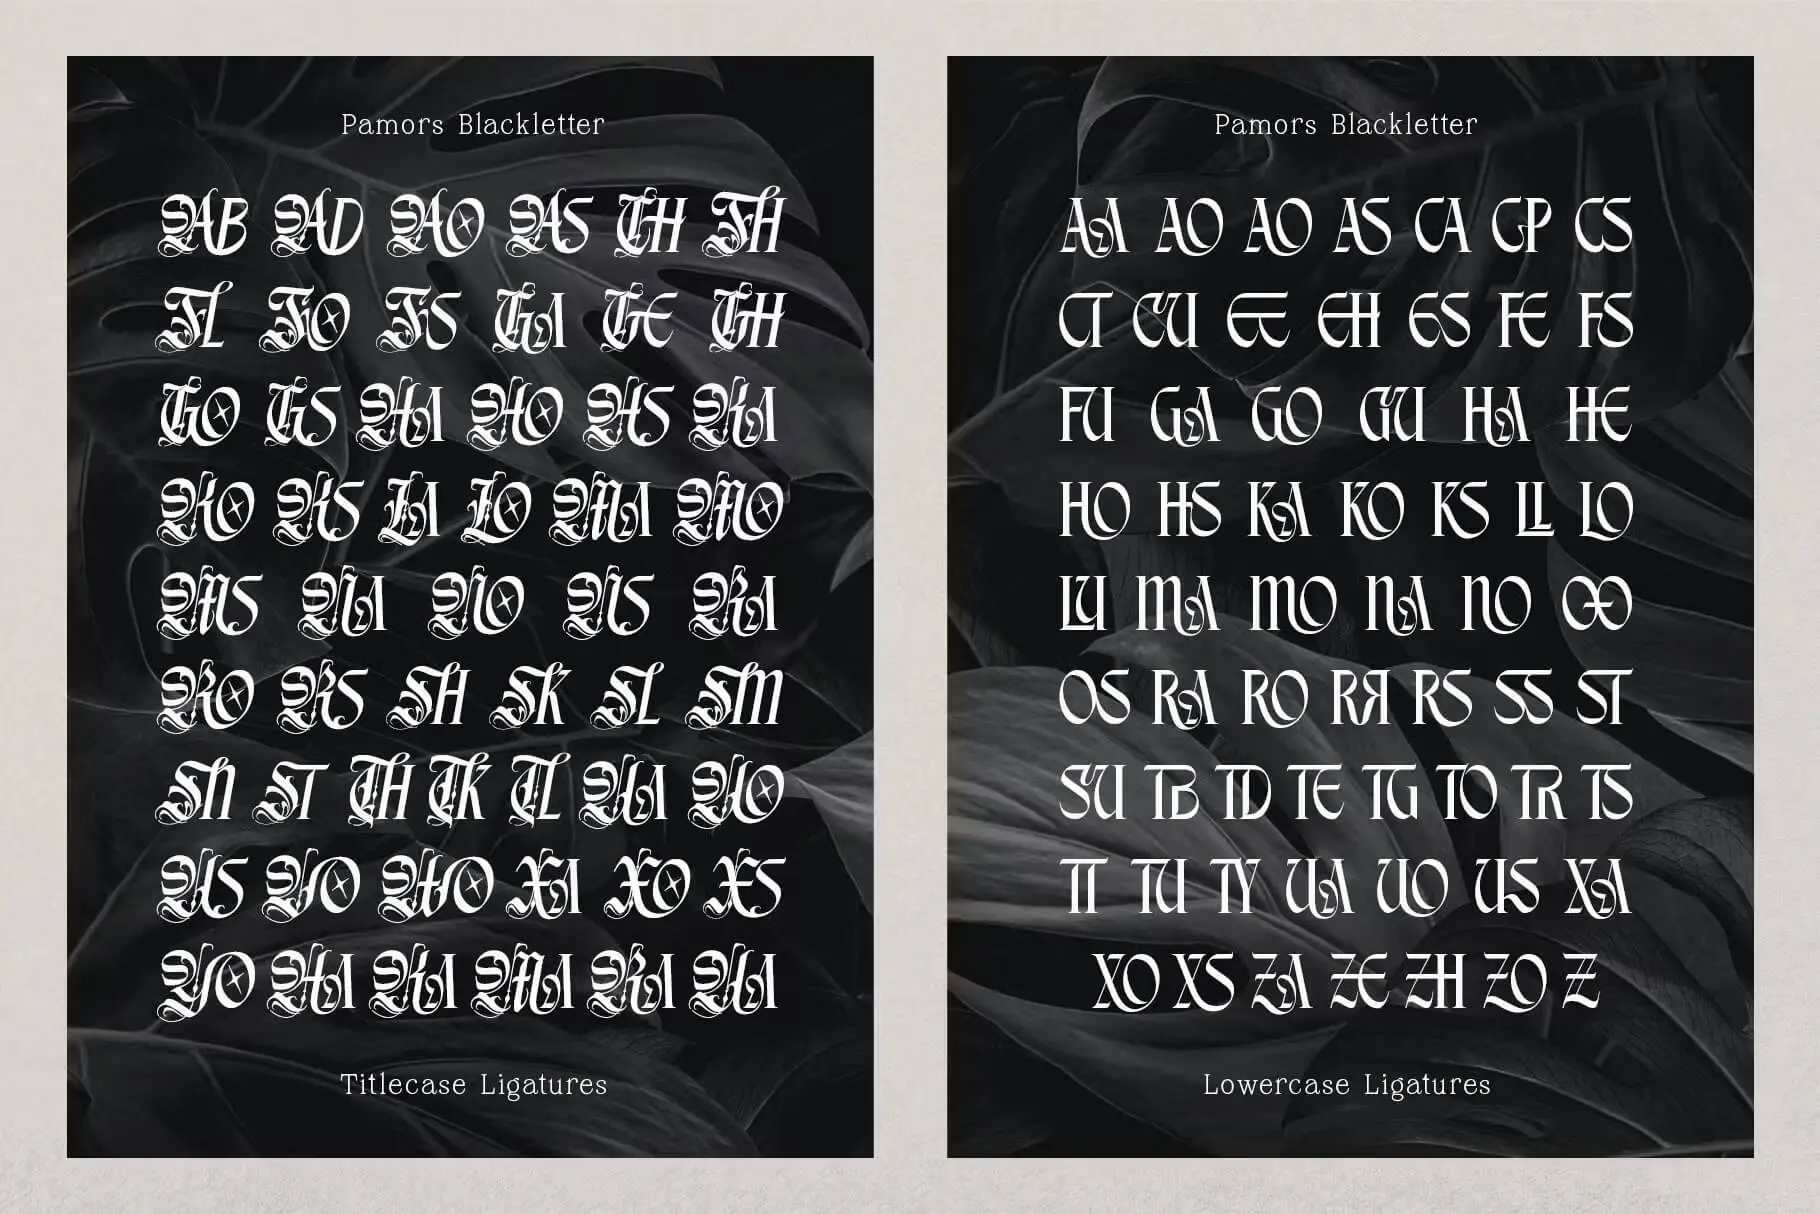 Pamors Blackletter
AB AD AO AS CH FH
FL FO FS GA GE GH
GO GS HA HO HS KA
KO KS LA LO MA MO
MS NA NO NS RA
RO RS SH SK SL SM
SN ST TH TK TL UA UO
US VO WO XA XO XS
YO HA KA MA RA UA
Titlecase Ligatures
Pamors Blackletter
AA AO AO AS CA CP CS
CT CU EE EH ES FE FS
FU GA GO GU HA HE
HO HS KA KO KS LL LO
LU MA MO NA NO OO
OS RA RO RR RS SS ST
SU TB TD TE TG TO TR TS
TT TU TY UA UO US XA
XO XS ZA ZE ZH ZO ZZ
Lowercase Ligatures